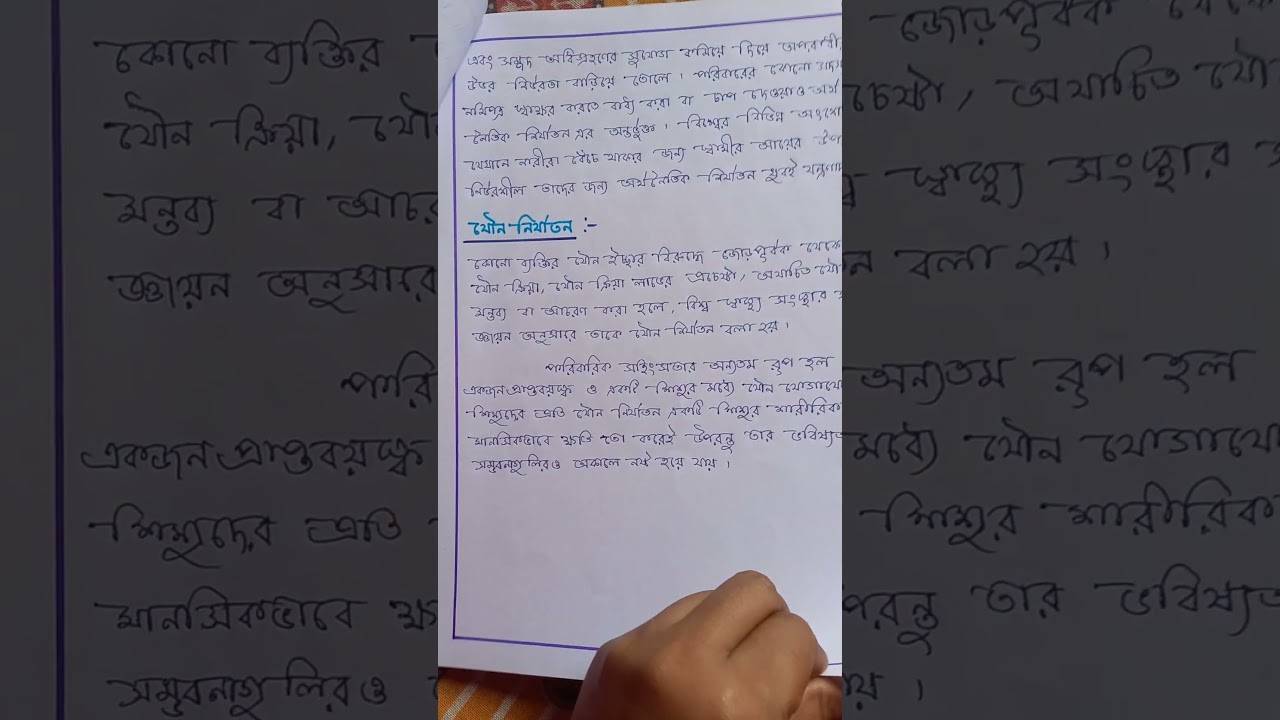 এবং সম্পদ অধিগ্রহণের সুযোগ কমিয়ে দিয়ে অপরাধী
উপর নির্ভরতা বাড়িয়ে তোলে। পরিবারের কোনো সদস্য
নথিপত্র স্বাক্ষর করতে বাধ্য করা বা চাপ দেওয়াও অর্থ
নৈতিক নির্যাতন এর অন্তর্ভুক্ত। বিশ্বের বিভিন্ন অংশে
যেখানে নারীরা বেঁচে থাকার জন্য স্বামীর আয়ের উপ
নির্ভরশীল তাদের জন্য অর্থনৈতিক নির্যাতন খুবই
যৌন নির্যাতন :-
কোনো ব্যক্তির যৌন ইচ্ছার বিরুদ্ধে জোড়পূর্বক থেকে
যৌন ক্রিয়া, যৌন ক্রিয়া লাভের প্রচেষ্টা, অযাচিত যৌ
মন্তব্য বা আচরণ করা হলে, বিশ্ব স্বাস্থ্য সংস্থার
জ্ঞায়ন অনুসারে তাকে যৌন নির্যাতন বলা হয়।
পারিবারিক সহিংসতার অন্যতম রূপ হল
একজন প্রাপ্তবয়স্ক ও একটি শিশুর মধ্যে যৌন যোগাযো
শিশুদের প্রতি যৌন নির্যাতন একটি শিশুর শারীরিক
মানসিকভাবে ক্ষতি তো করেই উপরন্তু তার ভবিষ্যত
সম্ভবনাগুলিরও অকালে নষ্ট হয়ে যায়।